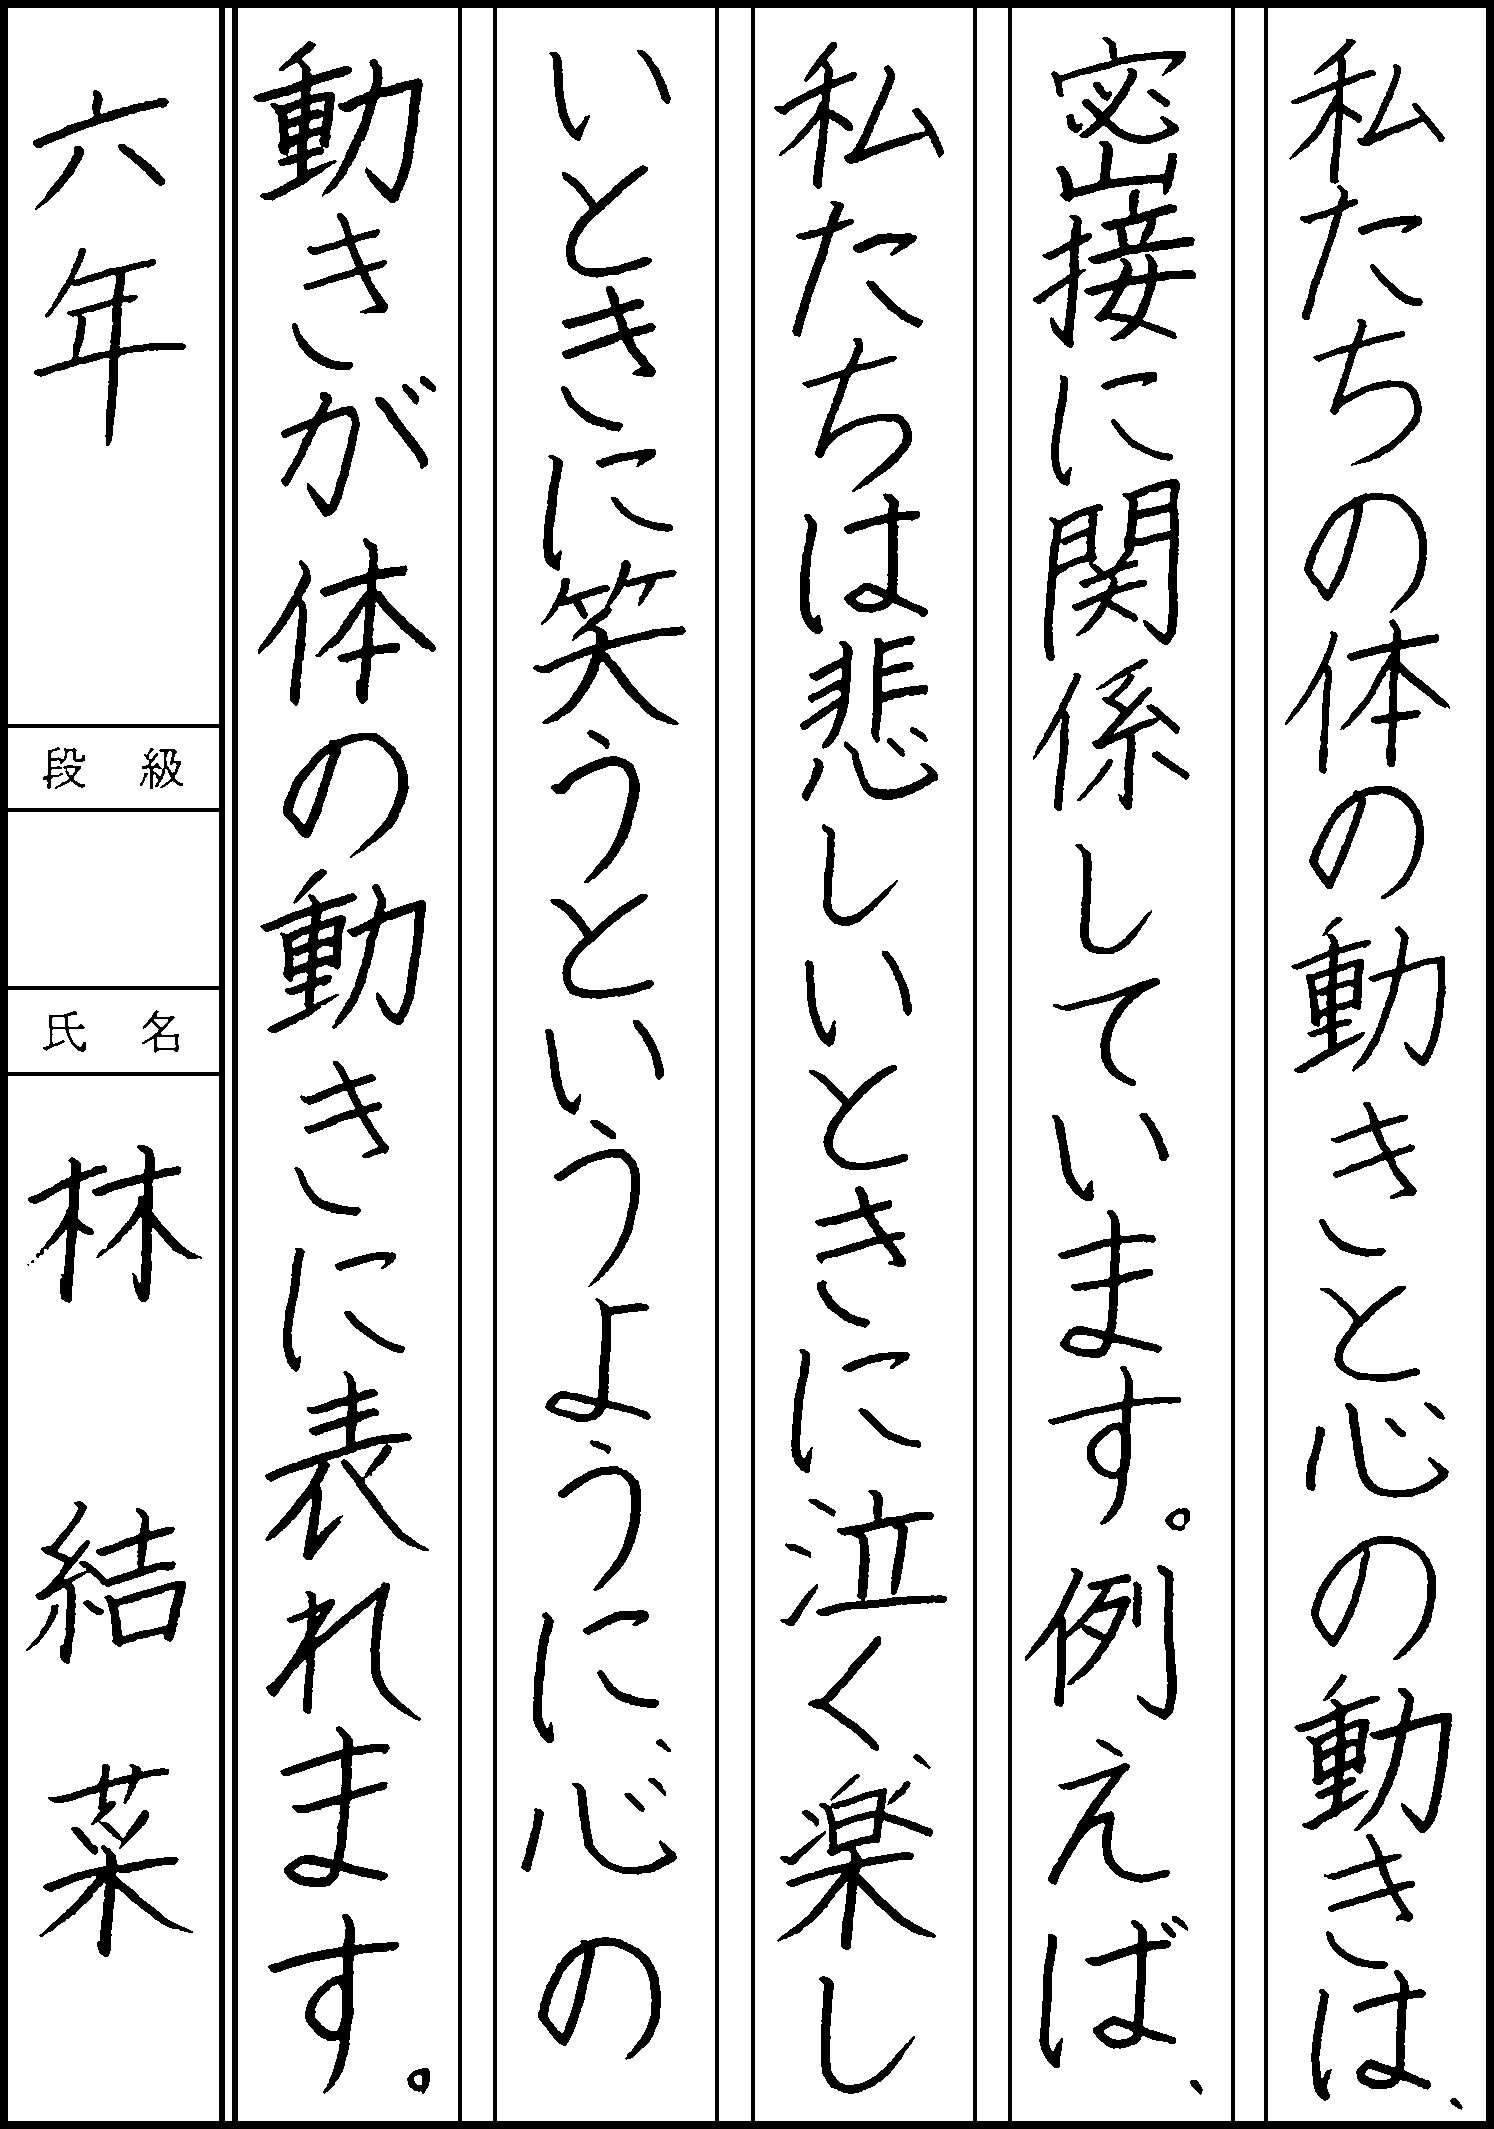 私たちの体の動きと心の動きは、
密接に関係しています。例えば、
私たちは悲しいときに泣く、楽し
いときに笑うというように、心の
動きが体の動きに表れます。
六年
段級
氏名
林 結菜